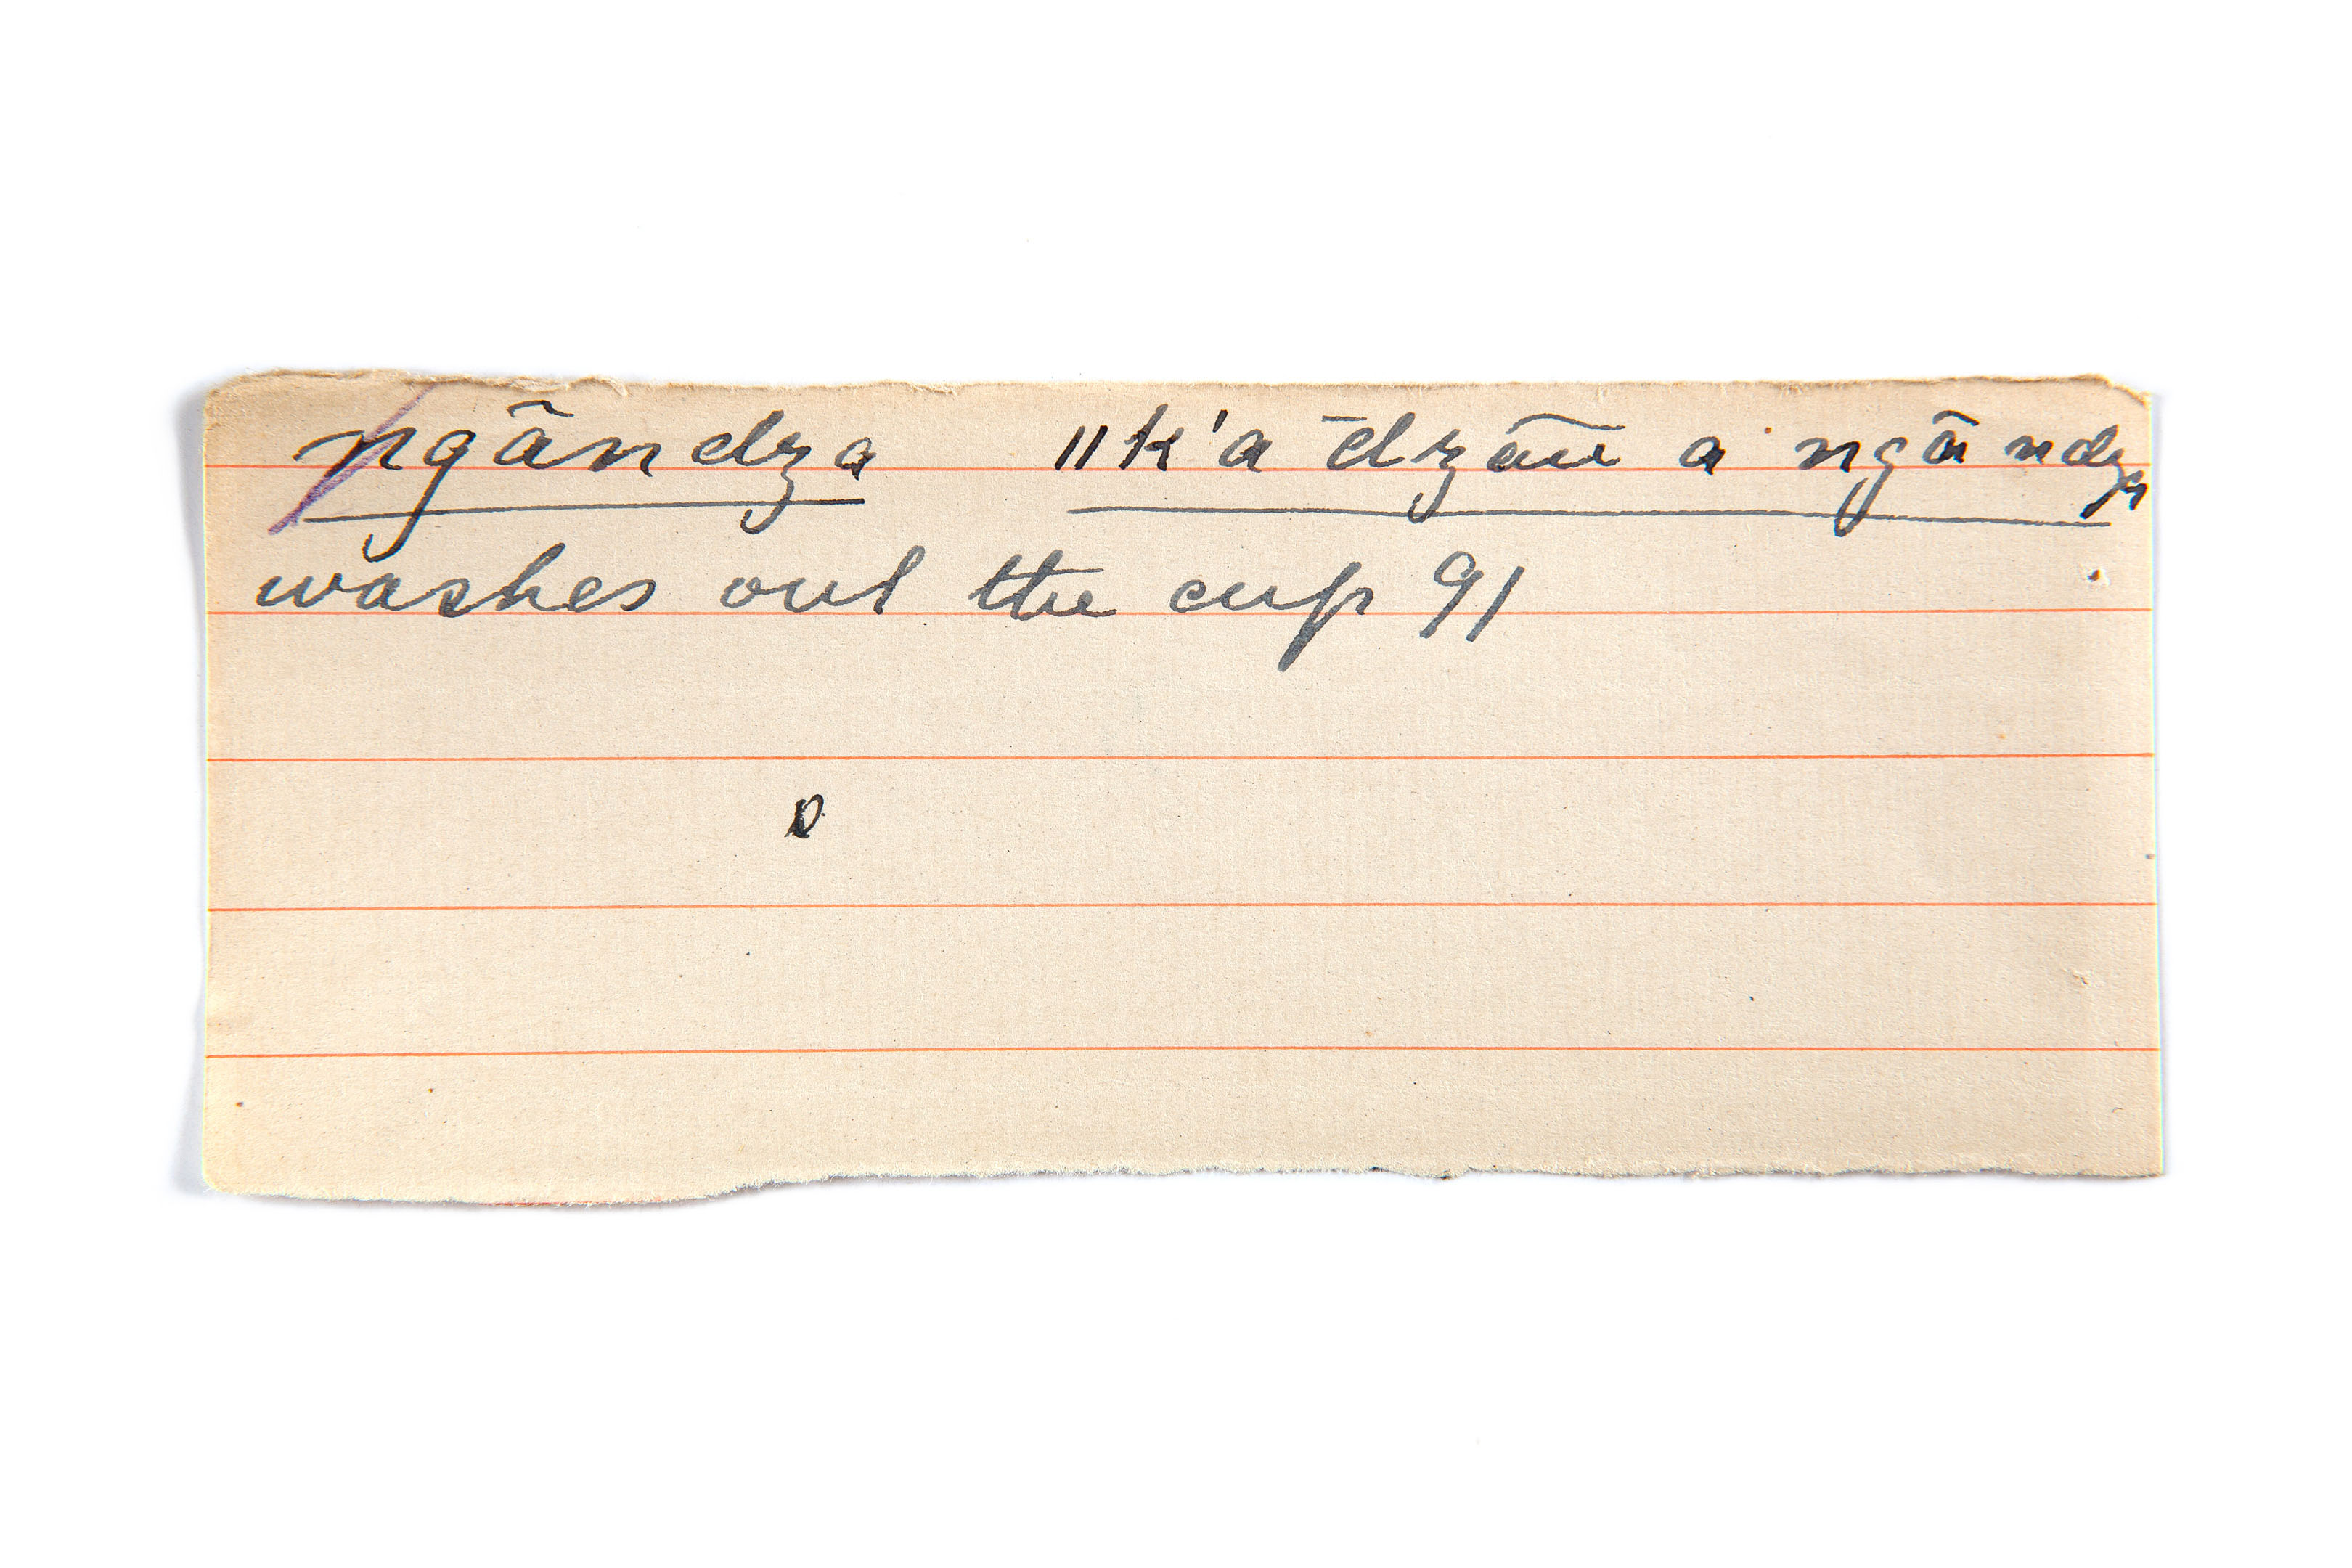 ngāndza ǁk'a d̄zāū a ngāndza
washes out the cup 91